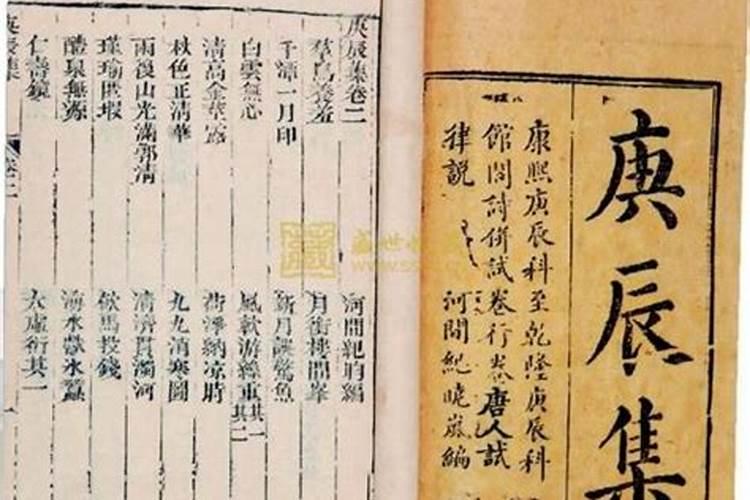 庚辰集
康熙庚辰科至乾隆庚辰科
館閣詩併試卷行卷唐人試
律説 河間紀曉嵐編
庚辰集卷二 河間紀昀編
羣鳥養羞 月銜樓間峯
千潭一月印 新月誤驚魚
白雲無心 風軟游絲重其一其二
清高金莖露 荷淨納凉時
秋色正清華 九九消寒圖
雨後山光滿郭清 清濟貫濁河
瑾瑜匿瑕 飲馬投錢
醴泉無源 水獻冰蠶
仁壽鏡 大虛衍其一
庚辰集 卷二 一